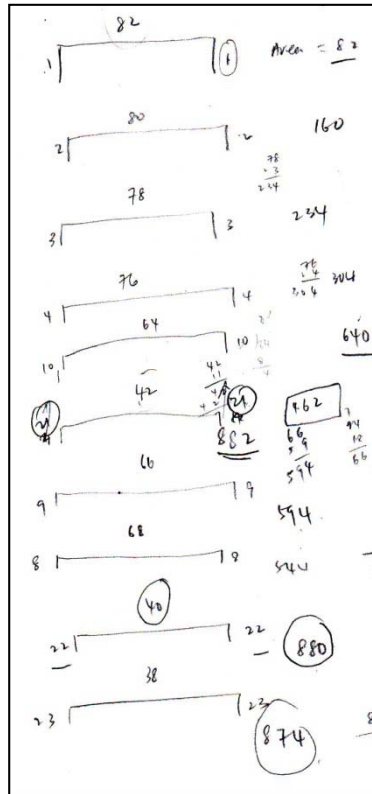 82
1 1 Area = 82
80
2 2 160
78
× 3
234
78
3 3 234
76
× 4
304
76
4 4 304
64
10 10 640
42
21 21 462
882
66
9
594
84
18
66
66
9 9 594
68
8 8 544
40
22 22 880
38
23 23 874